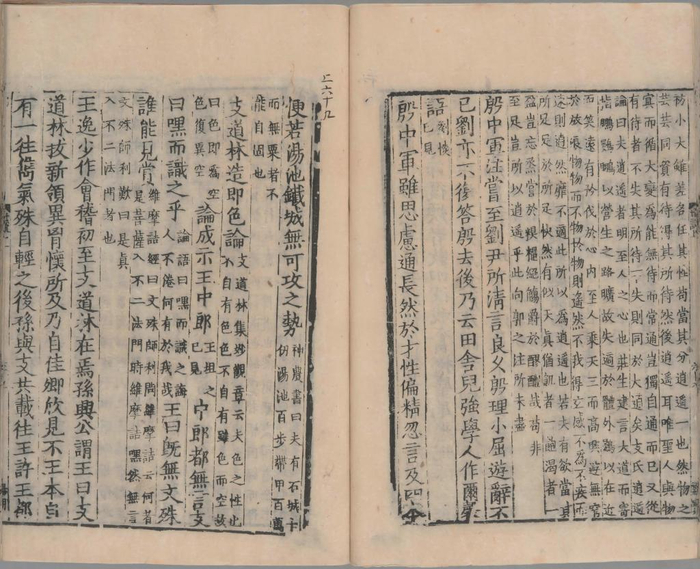 枋小大雖差各任其性苟當其分逍遙一也然物之
芸芸同資有待得其所待然後逍遙耳唯聖人與物
冥而循大變為能無待而常通豈獨自通而已又從
有待者不失其所待不失則同於大通矣支氏逍遙
論曰夫逍遙者明至人之心也莊生建言大道而寄
指鵬鷃鵬以營生之路曠故失適於體外鷃以在近
而笑遠有矜伐於心內至人乘天正而高興遊無窮
於放浪物物而不物於物則遙然不我得玄感不為不疾而
速則逍然靡不適此所以為逍遙也若夫有欲當其
所足足於所足快然有似天真猶飢者一飽渴者一
盈豈忘烝嘗於糗糧絕觴爵於醪醴哉苟非
至足豈所以逍遙乎此向郭之注所未盡
殷中軍注嘗至劉尹所清言良久殷理小屈遊辭不
已劉亦不復答殷去後乃云田舍兒強學人作爾馨
語劉惔已見
殷中軍雖思慮通長然於才性偏精忽言及四本
上六十九
便若湯池鐵城無可攻之勢神農書曰夫有石城七仞湯池百步帶甲百萬
而無粟者不能自固也
支道林造即色論支道林集妙觀章云夫色之性也不自有色色不自有雖色而空故
曰色即為空色復異空論成示王中郎王坦之已見中郎都無言支
曰嘿而識之乎論語曰嘿而識之誨人不倦何有於我哉王曰既無文殊
誰能見賞維摩詰經曰文殊師利問維摩詰云何者是菩薩入不二法門時維摩詰嘿然無言
文殊師利歎曰是真入不二法門也
王逸少作會稽初至支道林在焉孫興公謂王曰支
道林拔新領異胷懷所及乃自佳卿欣見不王本自
有一往雋氣殊自輕之後孫與支共載往王許王都